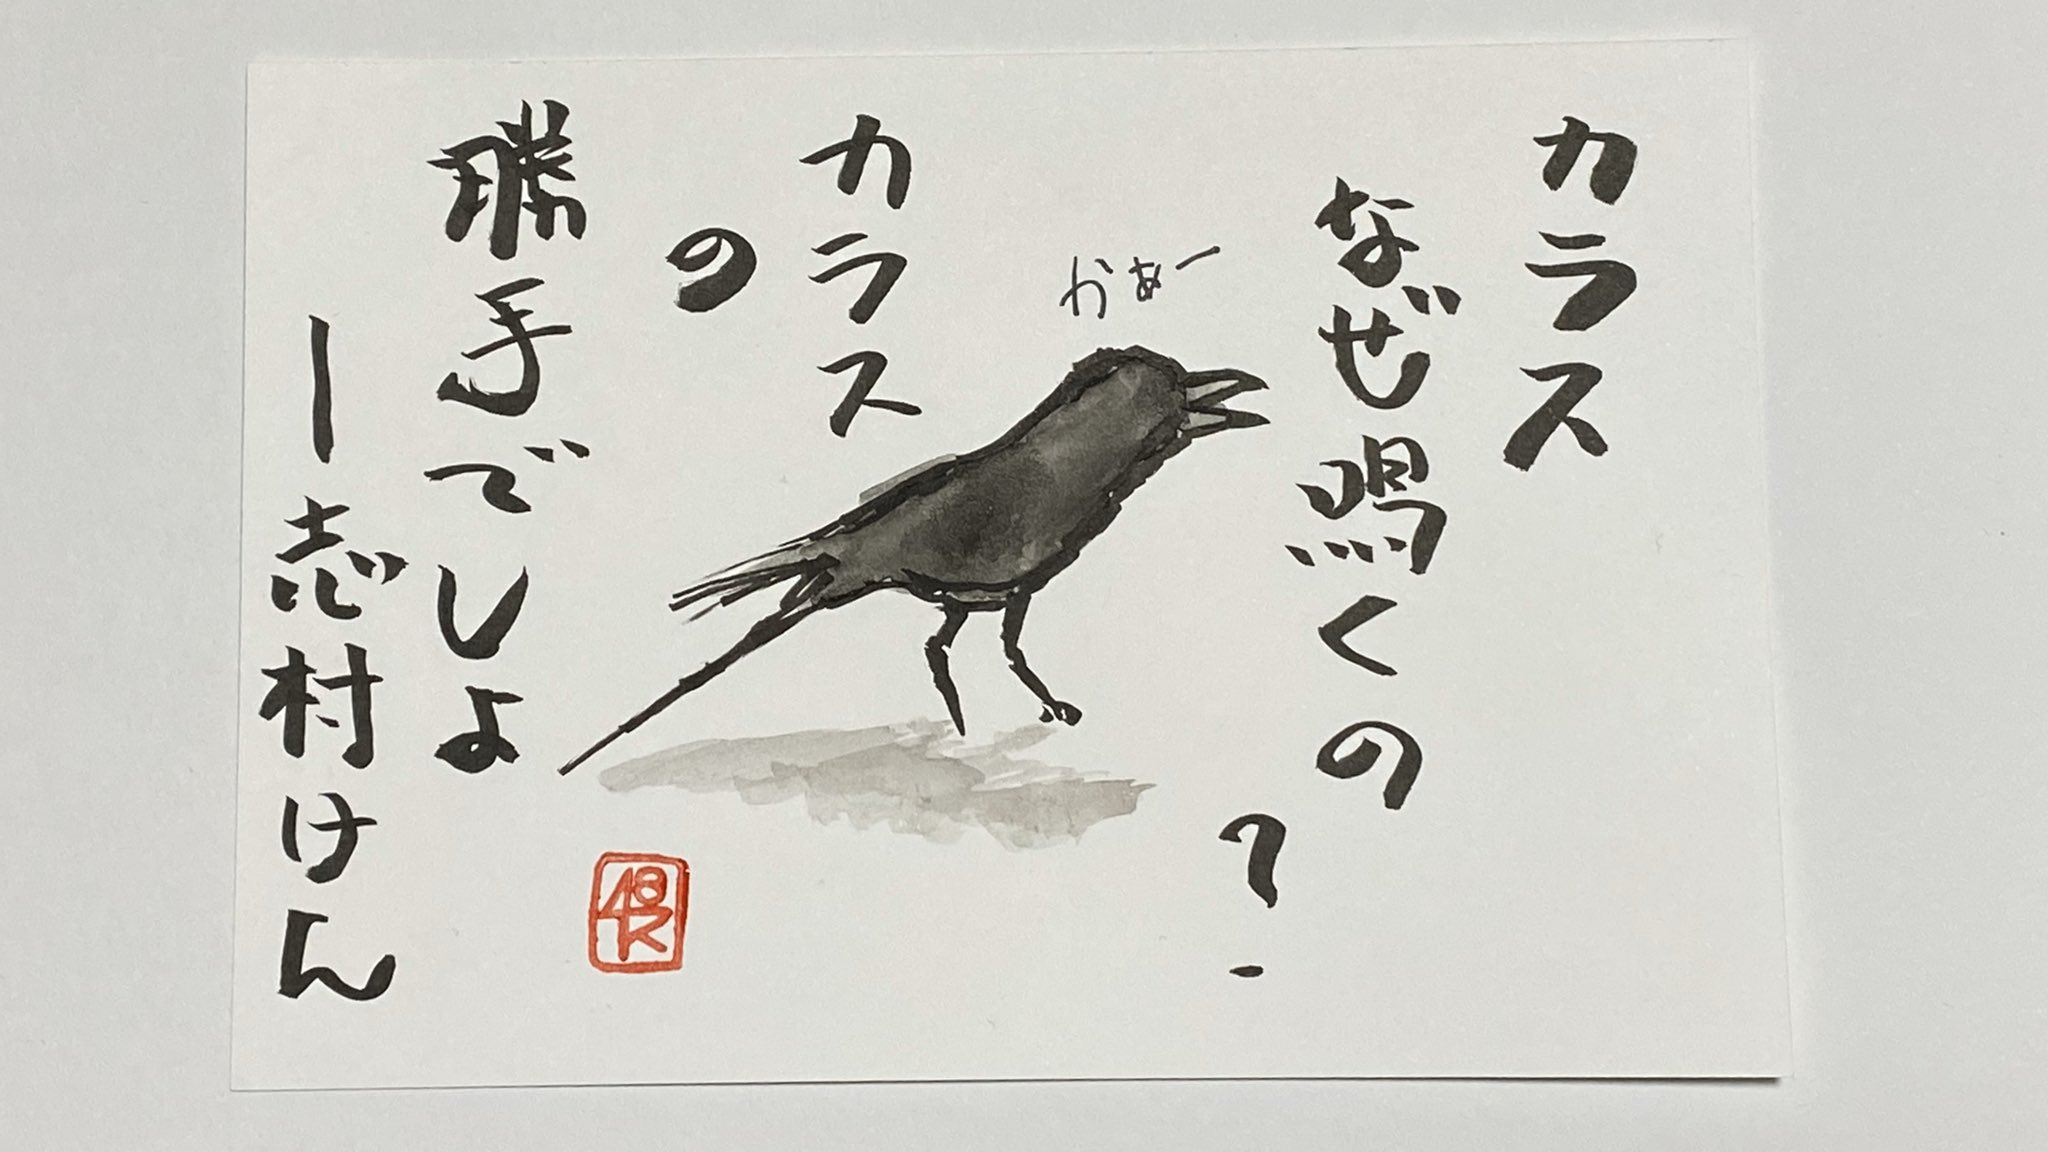 カラス
なぜ鳴くの
?
かぁー
カラス
の
勝手でしょ
ー志村けん
48K